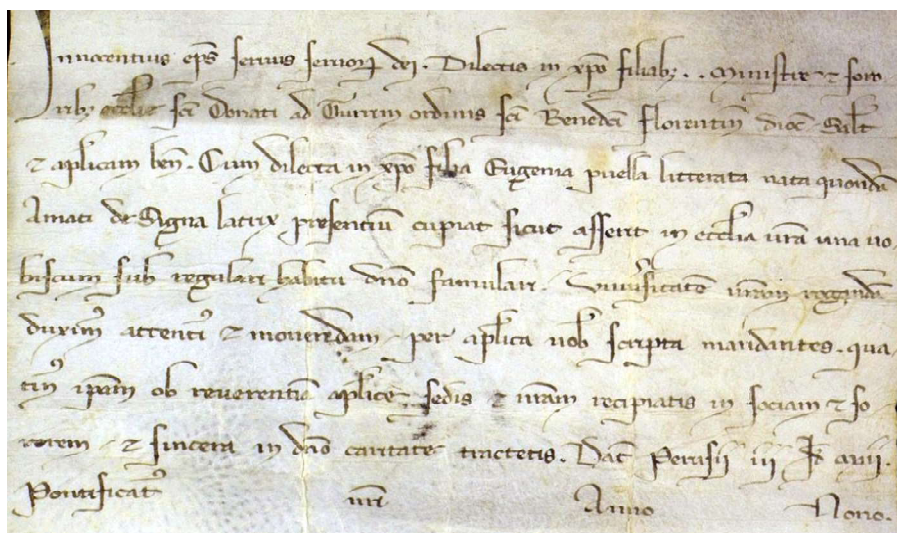 Innocentius eps servus servoꝝ dei. Dilectis in xpo filiabꝫ .. Ministre ⁊ soro
ribꝫ ecclie sci Donati ad Turrim ordinis sci Benedicti Florentin dioc Salt
⁊ aplicam ben. Cum dilecta in xpo filia Eugenia puella litterata nata quondam
Amati de Signa latrix presentium cupiat sicut asserit in ecclia vra una vo,
biscum sub regulari habitu dno famulari. Universitate vram rogandam
duximꝰ attentiꝰ ⁊ monendam, per aplica vob scripta mandantes. qua,
tinꝰ ipam ob reverentia aplice sedis ⁊ nram recipiatis in sociam ⁊ so
rorem, ⁊ sincera in dno caritate tractetis. Dat Perusii iii Id
Pontificatꝰ nri Anno Nono.